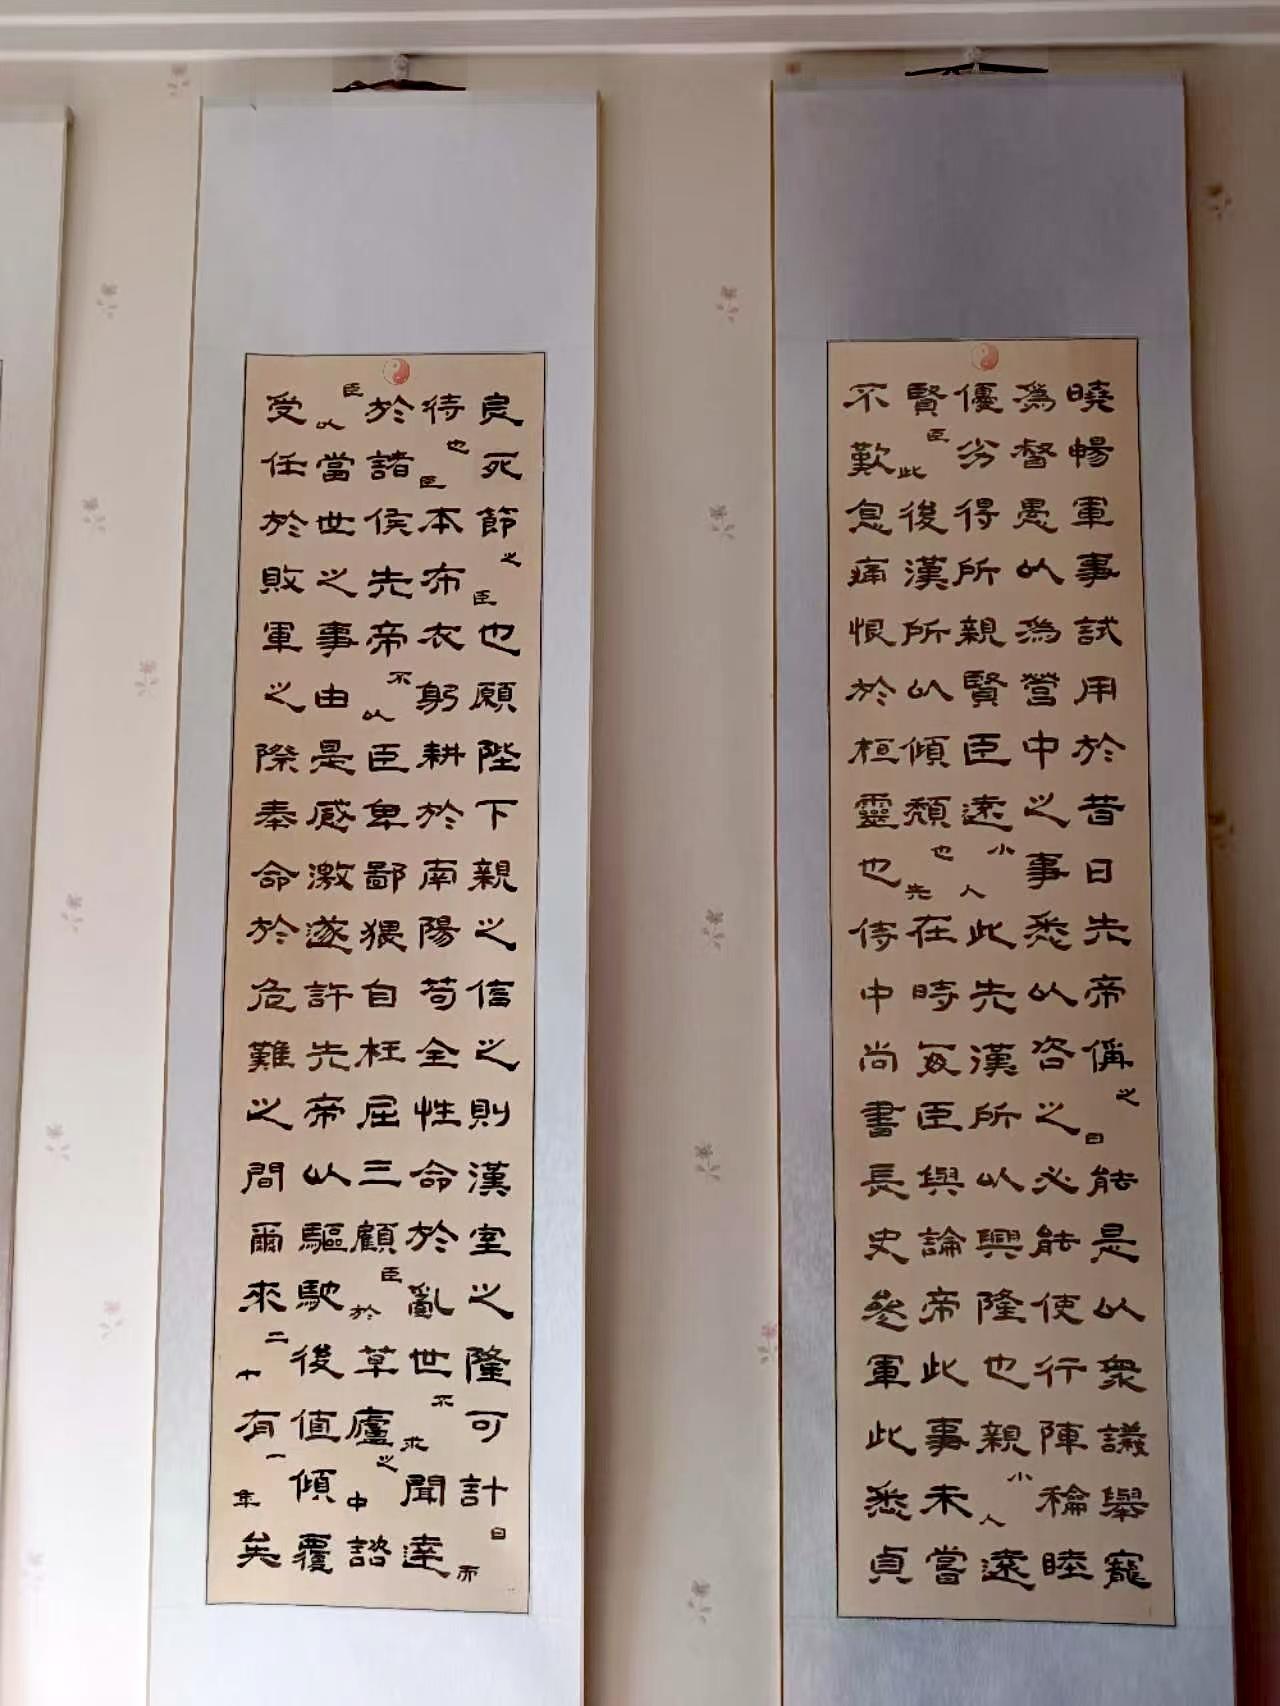 曉暢軍事試用於昔日先帝偁之曰能是以衆議舉寵
爲督愚以爲營中之事悉以咨之必能使行陣穆睦
優劣得所親賢臣遠小人此先漢所以興隆也親小人遠
賢臣此後漢所以傾頹也先在時每臣與論帝此事未當
不歎息痛恨於桓靈也侍中尚書長史參軍此悉貞
良死節之臣也願陛下親之信之則漢室之隆可計日而
待也臣本布衣躬耕於南陽苟全性命於亂世不求聞達
於諸侯先帝不以臣卑鄙猥自枉屈三顧臣於草廬之中諮
臣以當世之事由是感激遂許先帝以驅馳後值傾覆
受任於敗軍之際奉命於危難之間爾來二十有一年矣